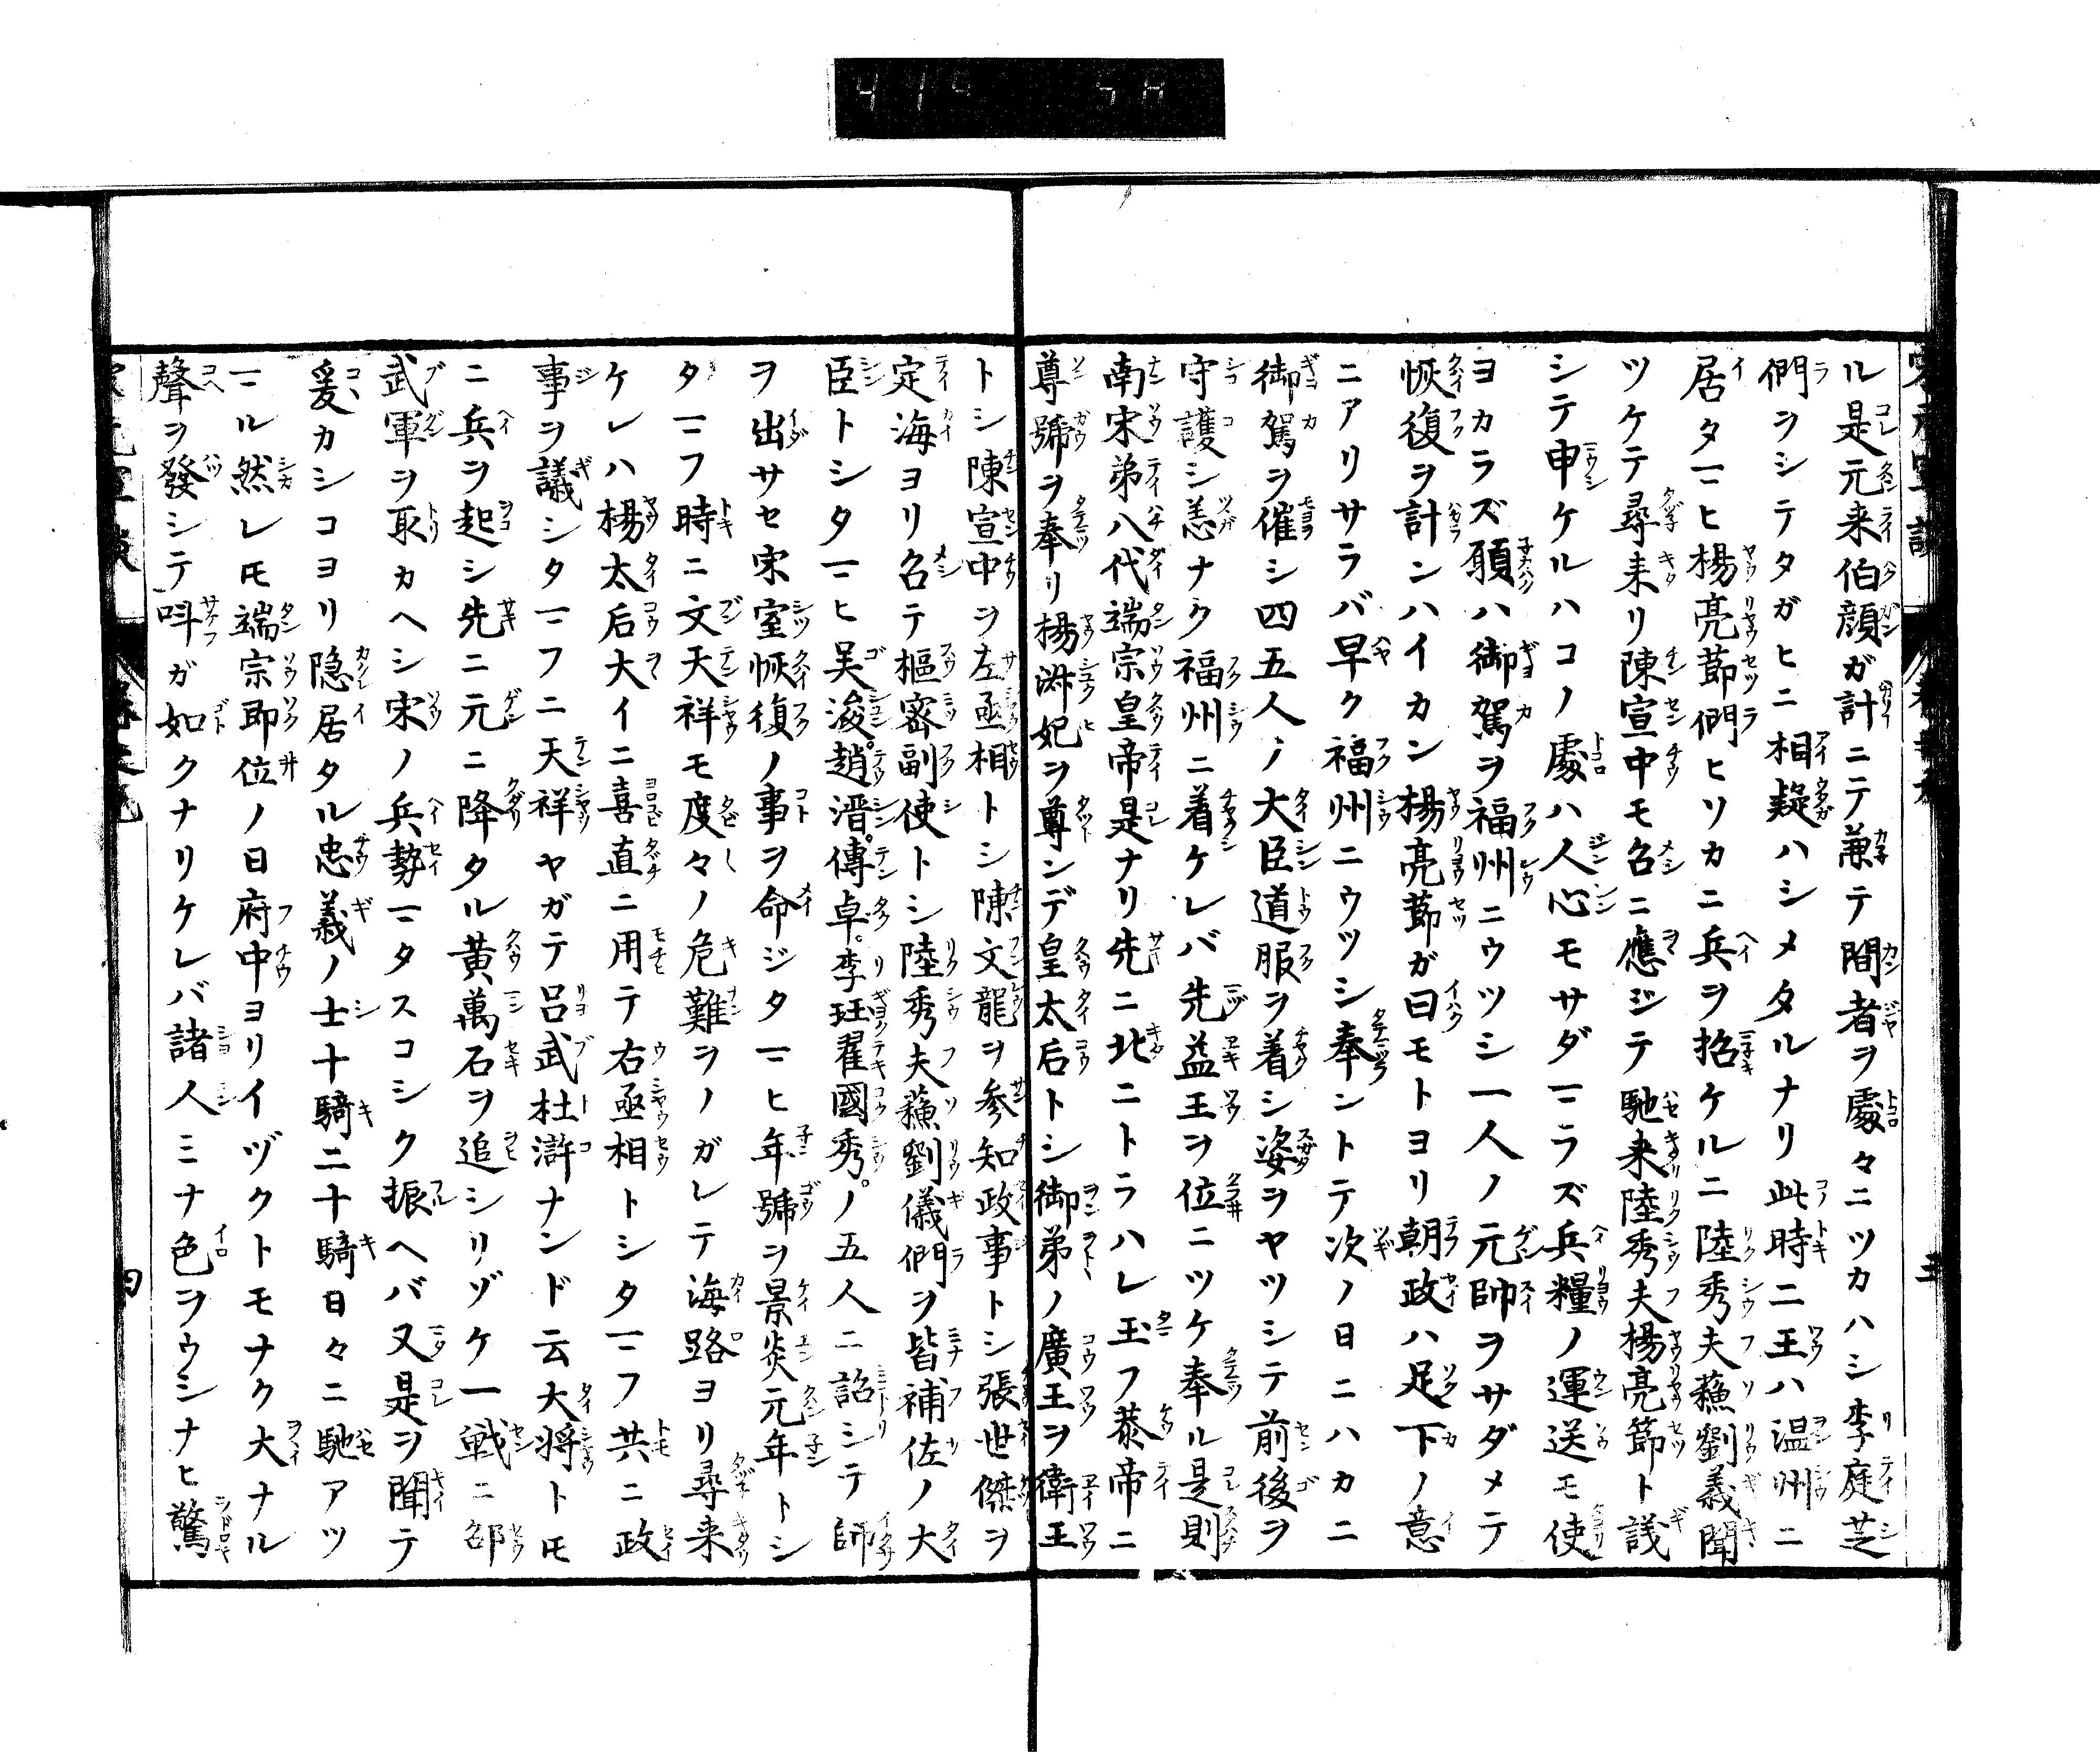 ル是元来伯顔ガ計ニテ兼テ間者ヲ處々ニツカハシ李庭芝
們ヲシテタガヒニ相疑ハシメタルナリ此時二王ハ温州ニ
居タマヒ楊亮莭們ヒソカニ兵ヲ招ケルニ陸秀夫蘓劉義聞
ツケテ尋来リ陳宣中モ召ニ應ジテ馳来陸秀夫楊亮節ト議
シテ申ケルハコノ處ハ人心モサダマラズ兵糧ノ運送モ使
ヨカラズ願ハ御駕ヲ福州ニウツシ一人ノ元帥ヲサダメテ
恢復ヲ計ンハイカン楊亮莭ガ曰モトヨリ朝政ハ足下ノ意
ニアリサラバ早ク福州ニウツシ奉ントテ次ノ日ニハカニ
御駕ヲ催シ四五人ノ大臣道服ヲ着シ姿ヲヤツシテ前後ヲ
守護シ恙ナク福州ニ着ケレバ先益王ヲ位ニツケ奉ル是則
南宋弟八代端宗皇帝是ナリ先ニ北ニトラハレ玉フ恭帝ニ
尊號ヲ奉リ楊淑妃ヲ尊ンデ皇太后トシ御弟ノ廣王ヲ衛王
トシ陳宣中ヲ左丞相トシ陳文龍ヲ参知政事トシ張世傑ヲ
定海ヨリ召テ樞密副使トシ陸秀夫蘓劉儀們ヲ皆補佐ノ大
臣トシタマヒ吴浚。趙溍。傳卓。李珏翟國秀。ノ五人ニ詔シテ師
ヲ出サセ宋室恢復ノ事ヲ命ジタマヒ年號ヲ景炎元年トシ
タマフ時ニ文天祥モ度々ノ危難ヲノガレテ海路ヨリ尋来
ケレハ楊太后大イニ喜直ニ用テ右丞相トシタマフ共ニ政
事ヲ議シタマフニ天祥ヤガテ呂武杜滸ナンド云大将トモ
ニ兵ヲ起シ先ニ元ニ降タル黄萬石ヲ追シリヅケ一戦ニ邵
武軍ヲ取カヘシ宋ノ兵勢マタスコシク振ヘバ又是ヲ聞テ
爰カシコヨリ隠居タル忠義ノ士十騎二十騎日々ニ馳アツ
マル然レモ端宗即位ノ日府中ヨリイヅクトモナク大ナル
聲ヲ發シテ呌ガ如クナリケレバ諸人ミナ色ヲウシナヒ驚